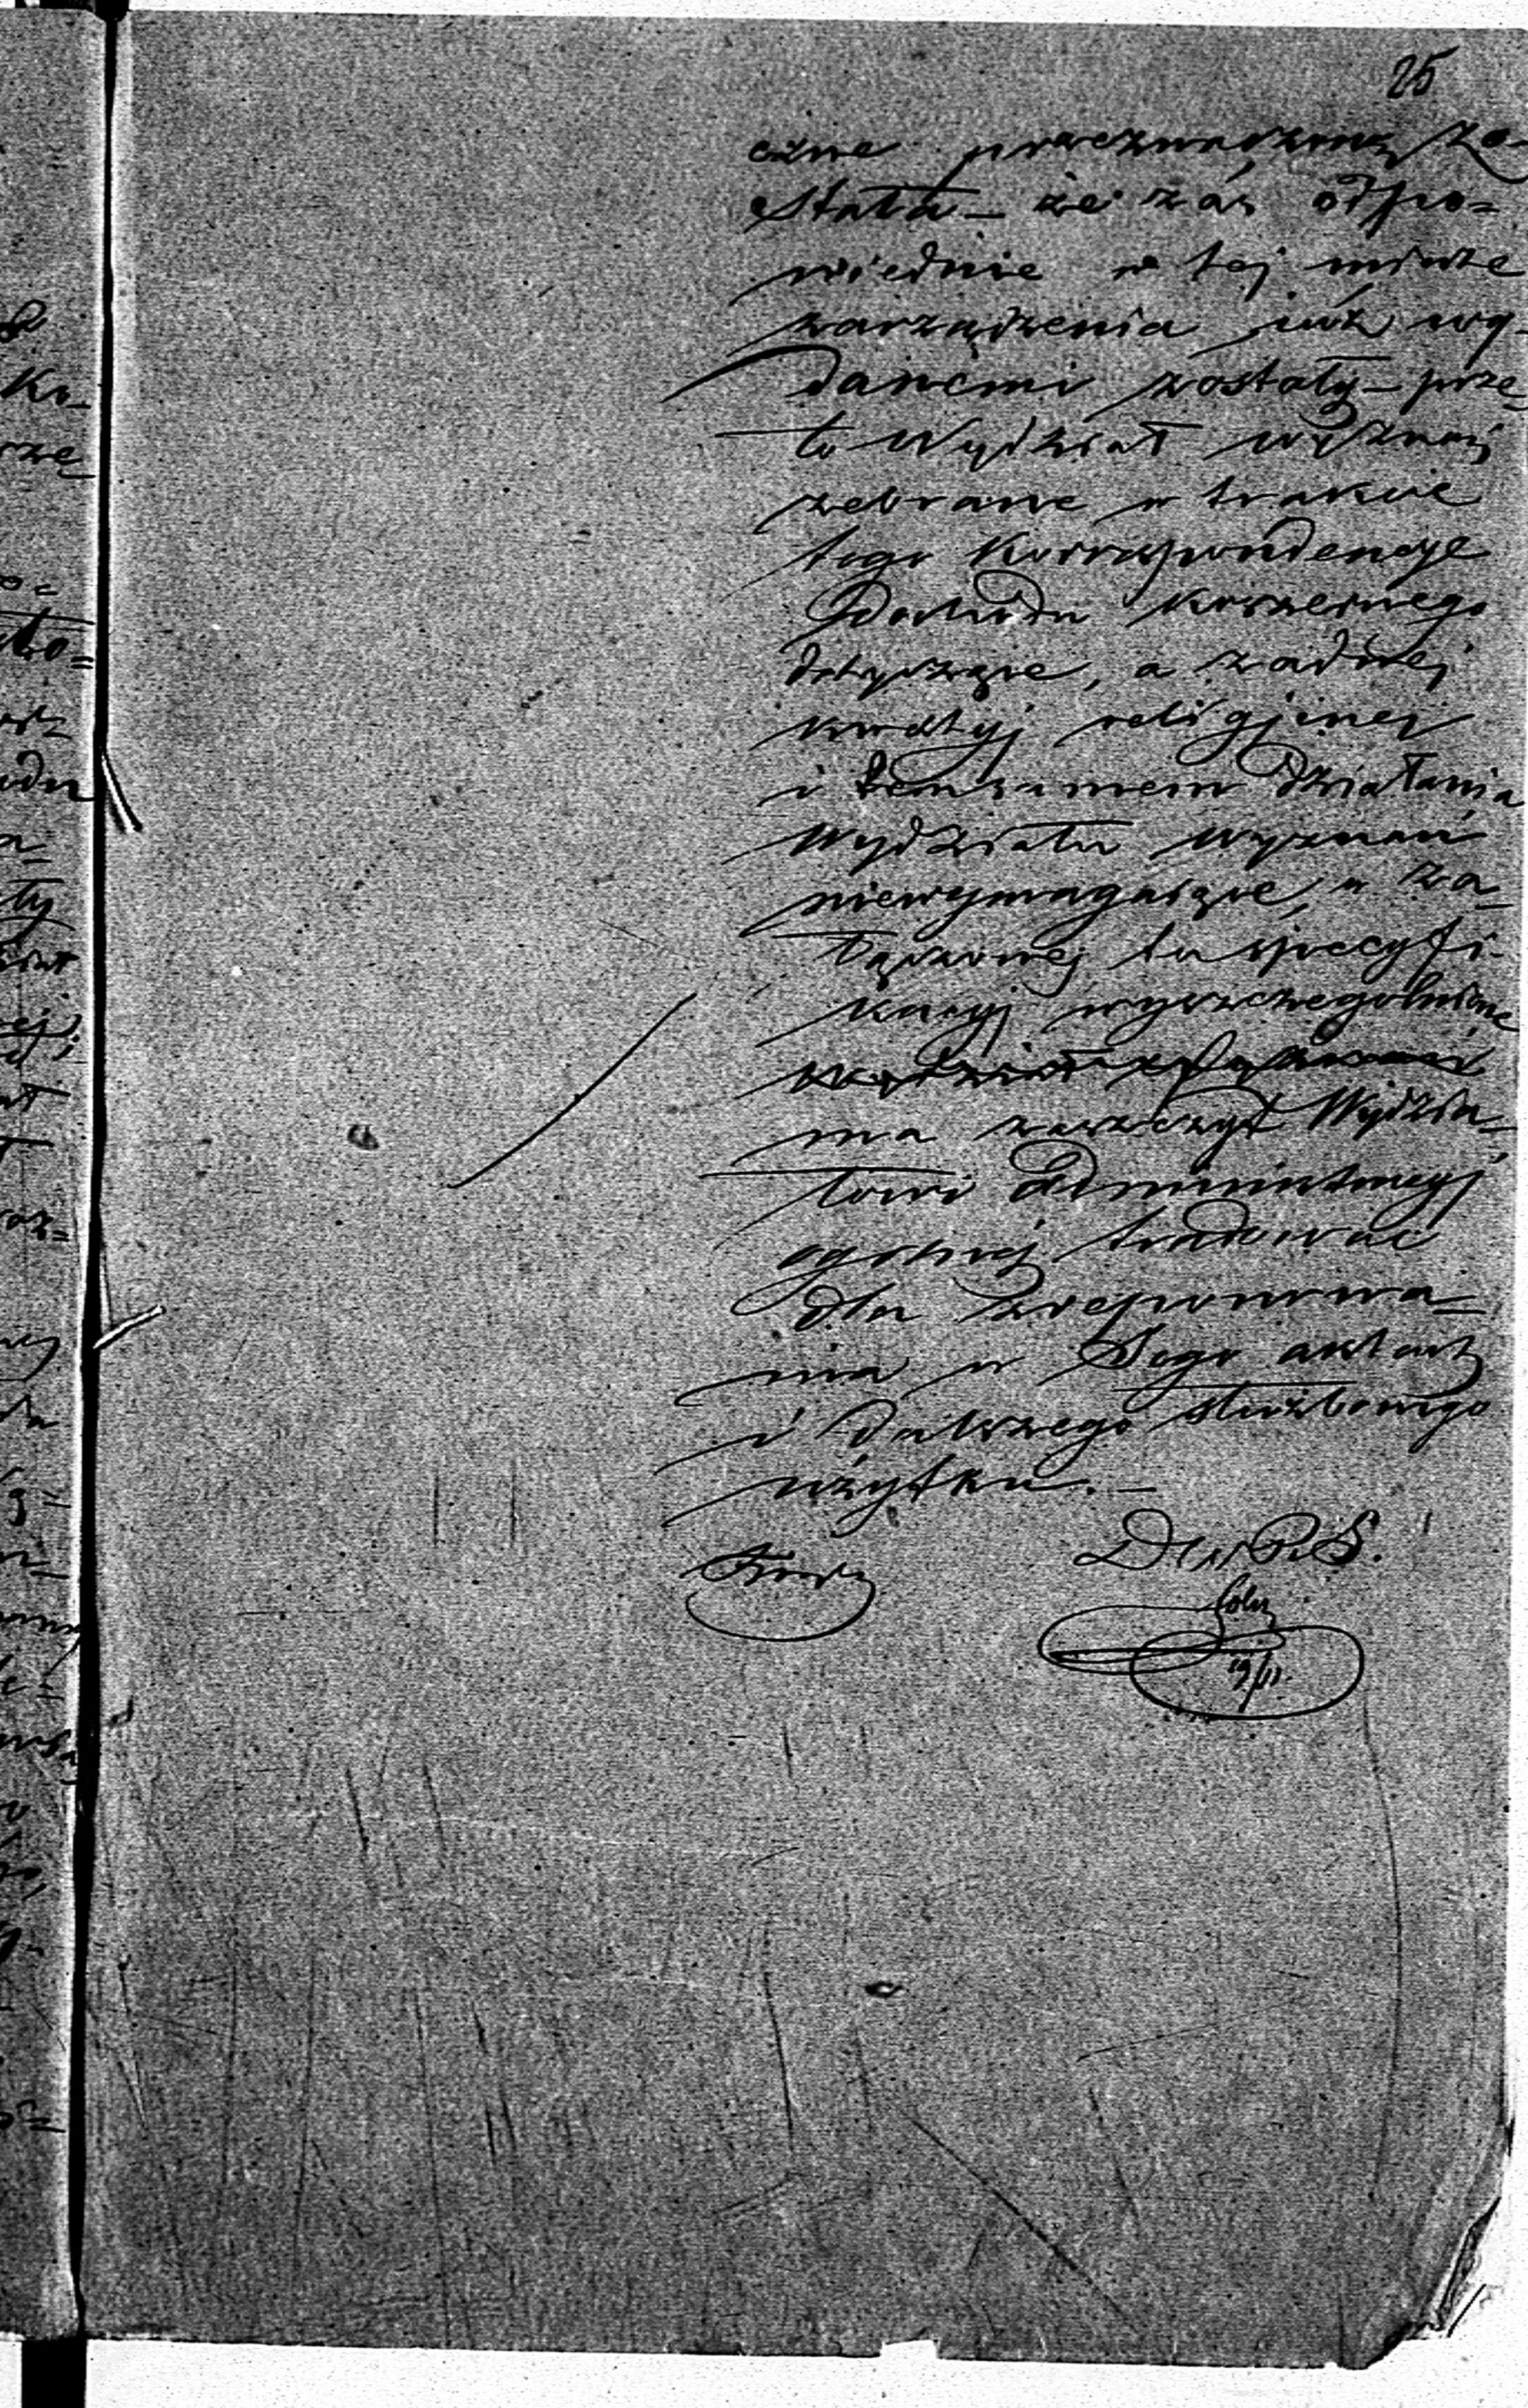 25
czne przeznaczoną zo-
stała – że zaś odpo=
wiednie w tej mierze
zarządzenia już wy-
danemi zostały – prze-
to Wydział wyznań
zebrane w trakcie
tego korrespondencye
Dochodu koszernego
dotyczące, a żadnej
kwestyj religijnej
i działania
Wydziału wyznań
niewymagające, w za-
łączonej tu specyfi-
kacyj wyszczególnione
ma zaszczyt Wydzia-
łowi Administracyj
ogólnej tradować
dla zreponowa-
nia w Jego aktach
i dalszego służbowego
użytku. –
19/11.